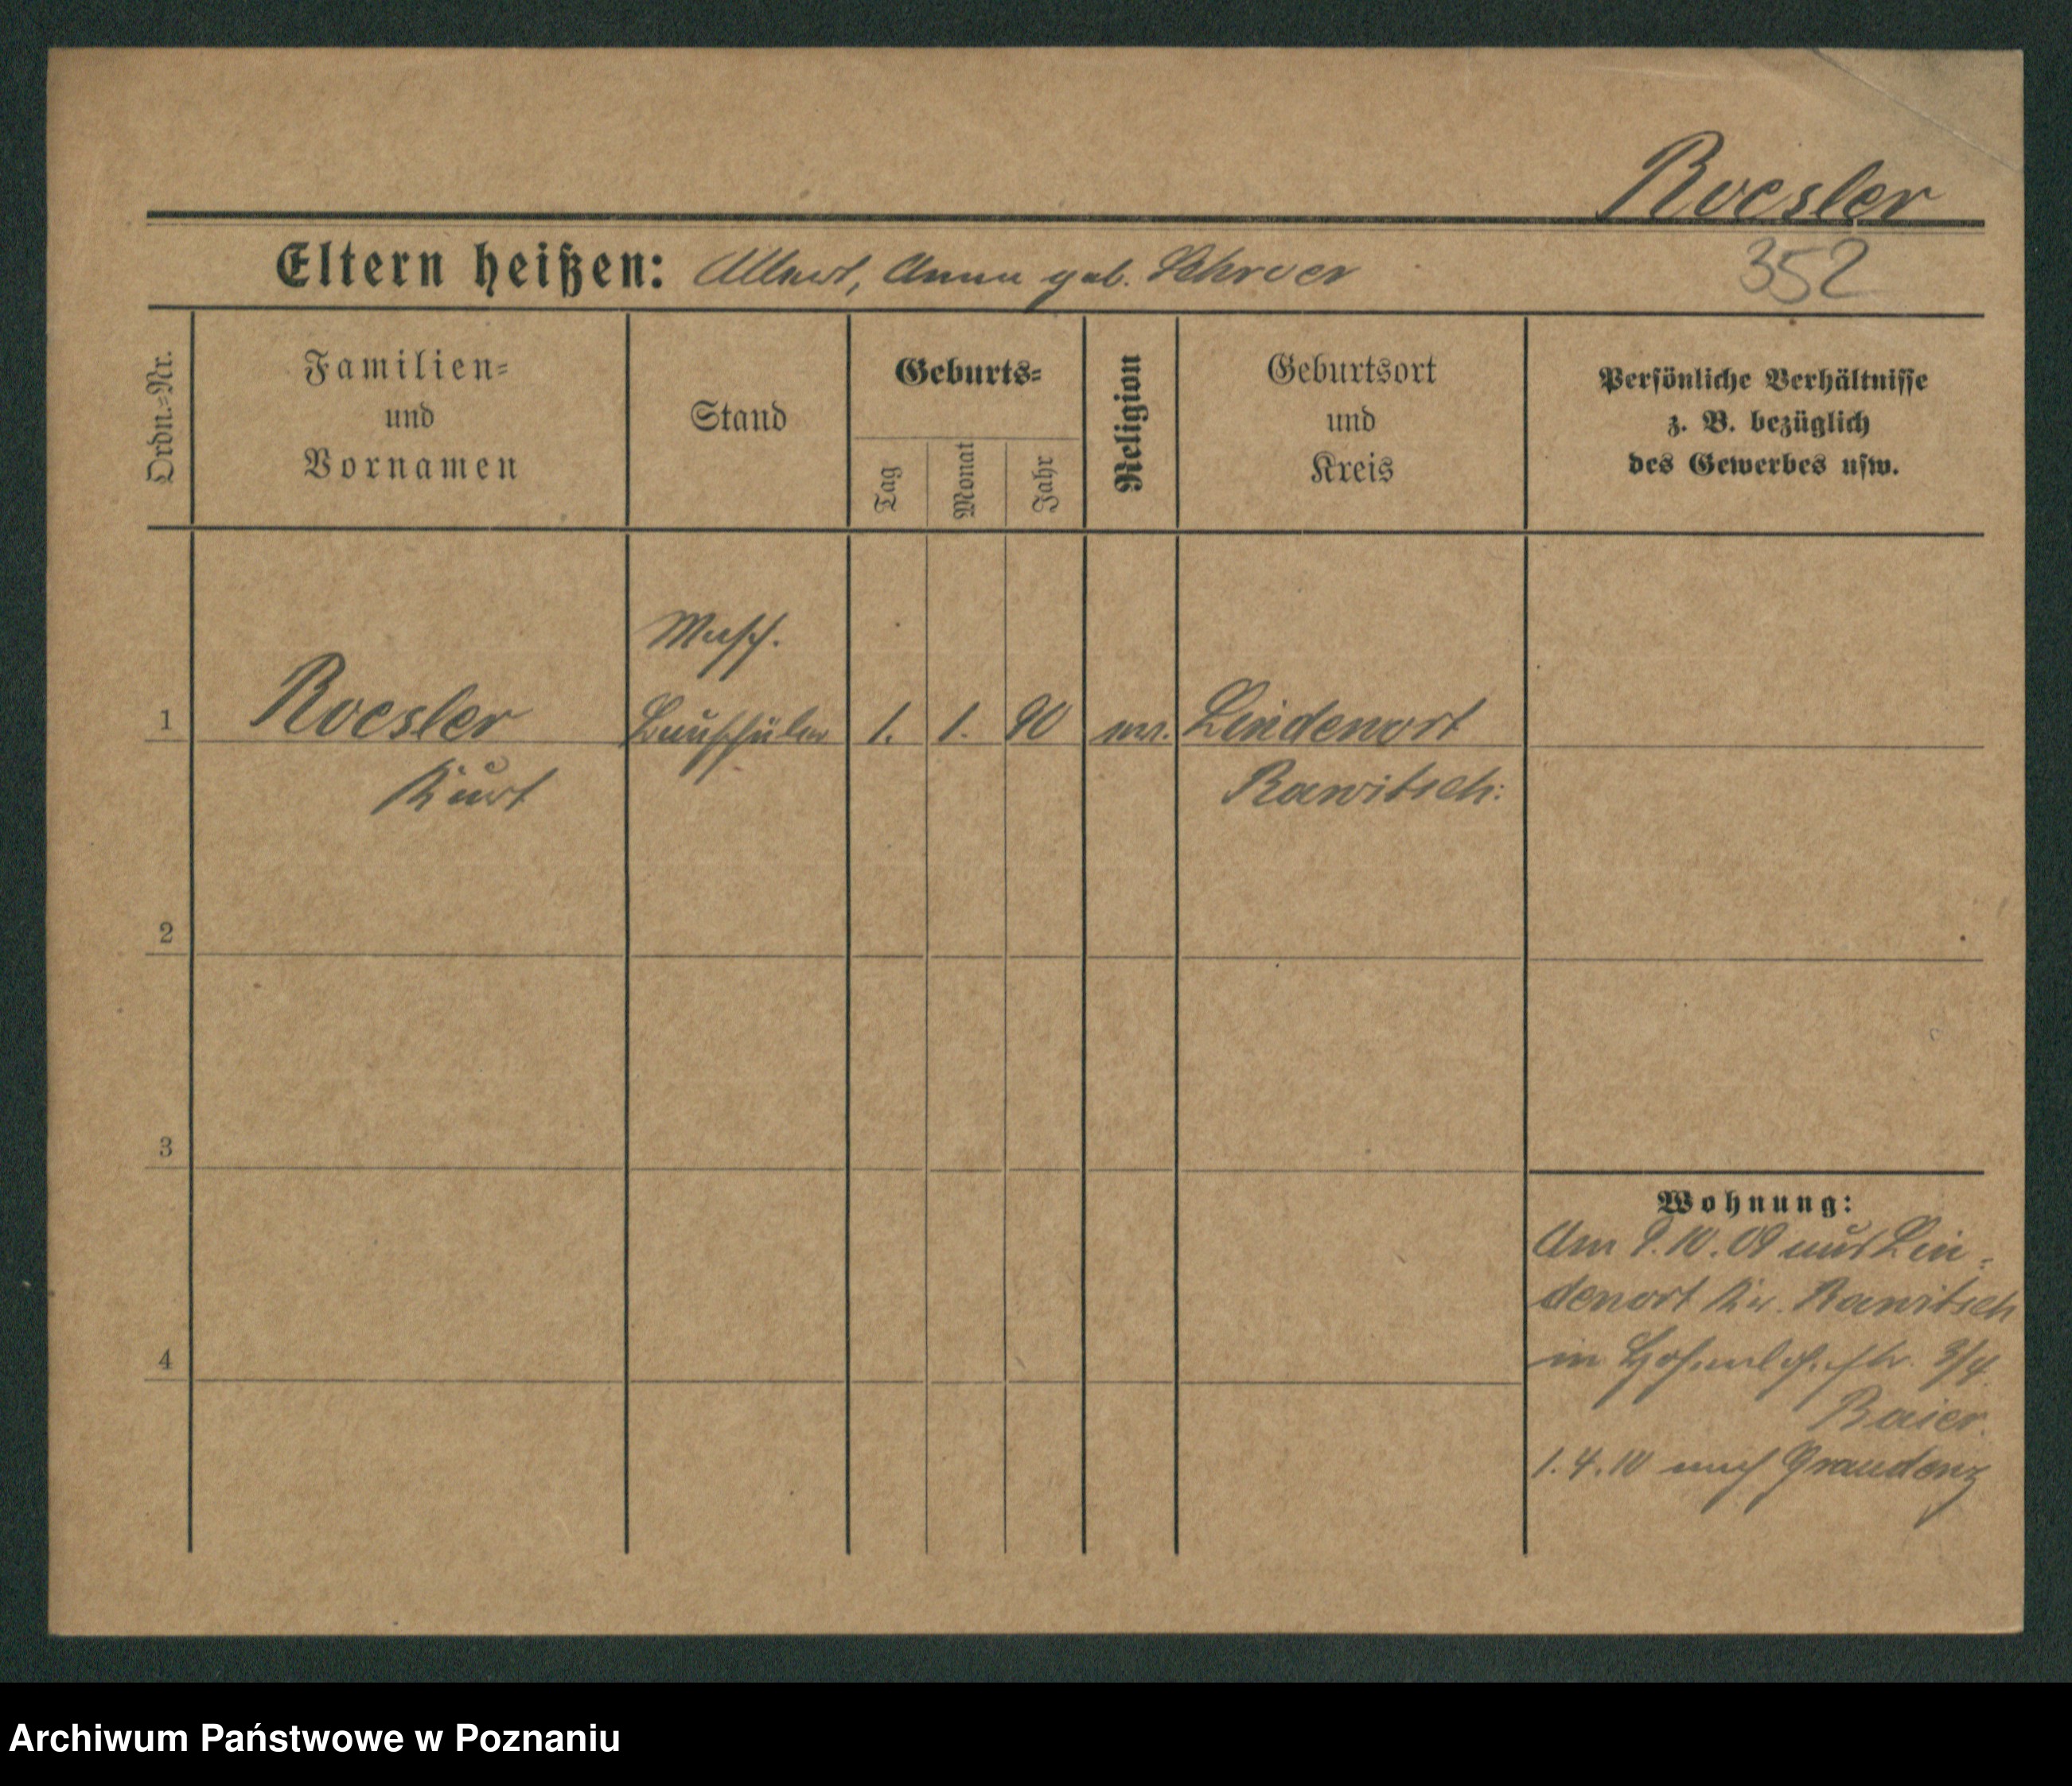 Roesler
Eltern heißen: Albert, Anna geb. Schroer
352
Ordn.-Nr.
Familien-
und
Vornamen
Stand
Geburts-
Tag
Monat
Jahr
Religion
Geburtsort
und
Kreis
Persönliche Verhältnisse
z. B. bezüglich
des Gewerbes usw.
Masch.
1 Roesler Bauschüler 1. 1. 90 ev. Lindenort
Kurt Rawitsch
2
3
4
Wohnung:
Am 9.10.09 aus Lin-
denort Kr. Rawitsch
in Hohenloh.str. 3/4
Baier.
1.4.10 nach Graudenz
Archiwum Państwowe w Poznaniu